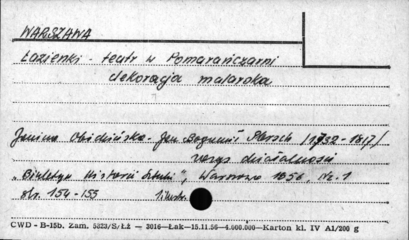 WARSZAWA
Łazienki - teatr w Pomarańczarni
dekoracja malarska
Janina Obidzińska - Jan Bogumił Plersch /1732-1817/
zarys działalności
„Biuletyn Historii Sztuki", Warszawa 1956, Nr. 1
str. 154-155 ilustr.
CWD - B-15b. Zam. 5323/S/ŁŻ — 3016—Łak—15.11.56—4.000.000—Karton kl. IV A1/200 g